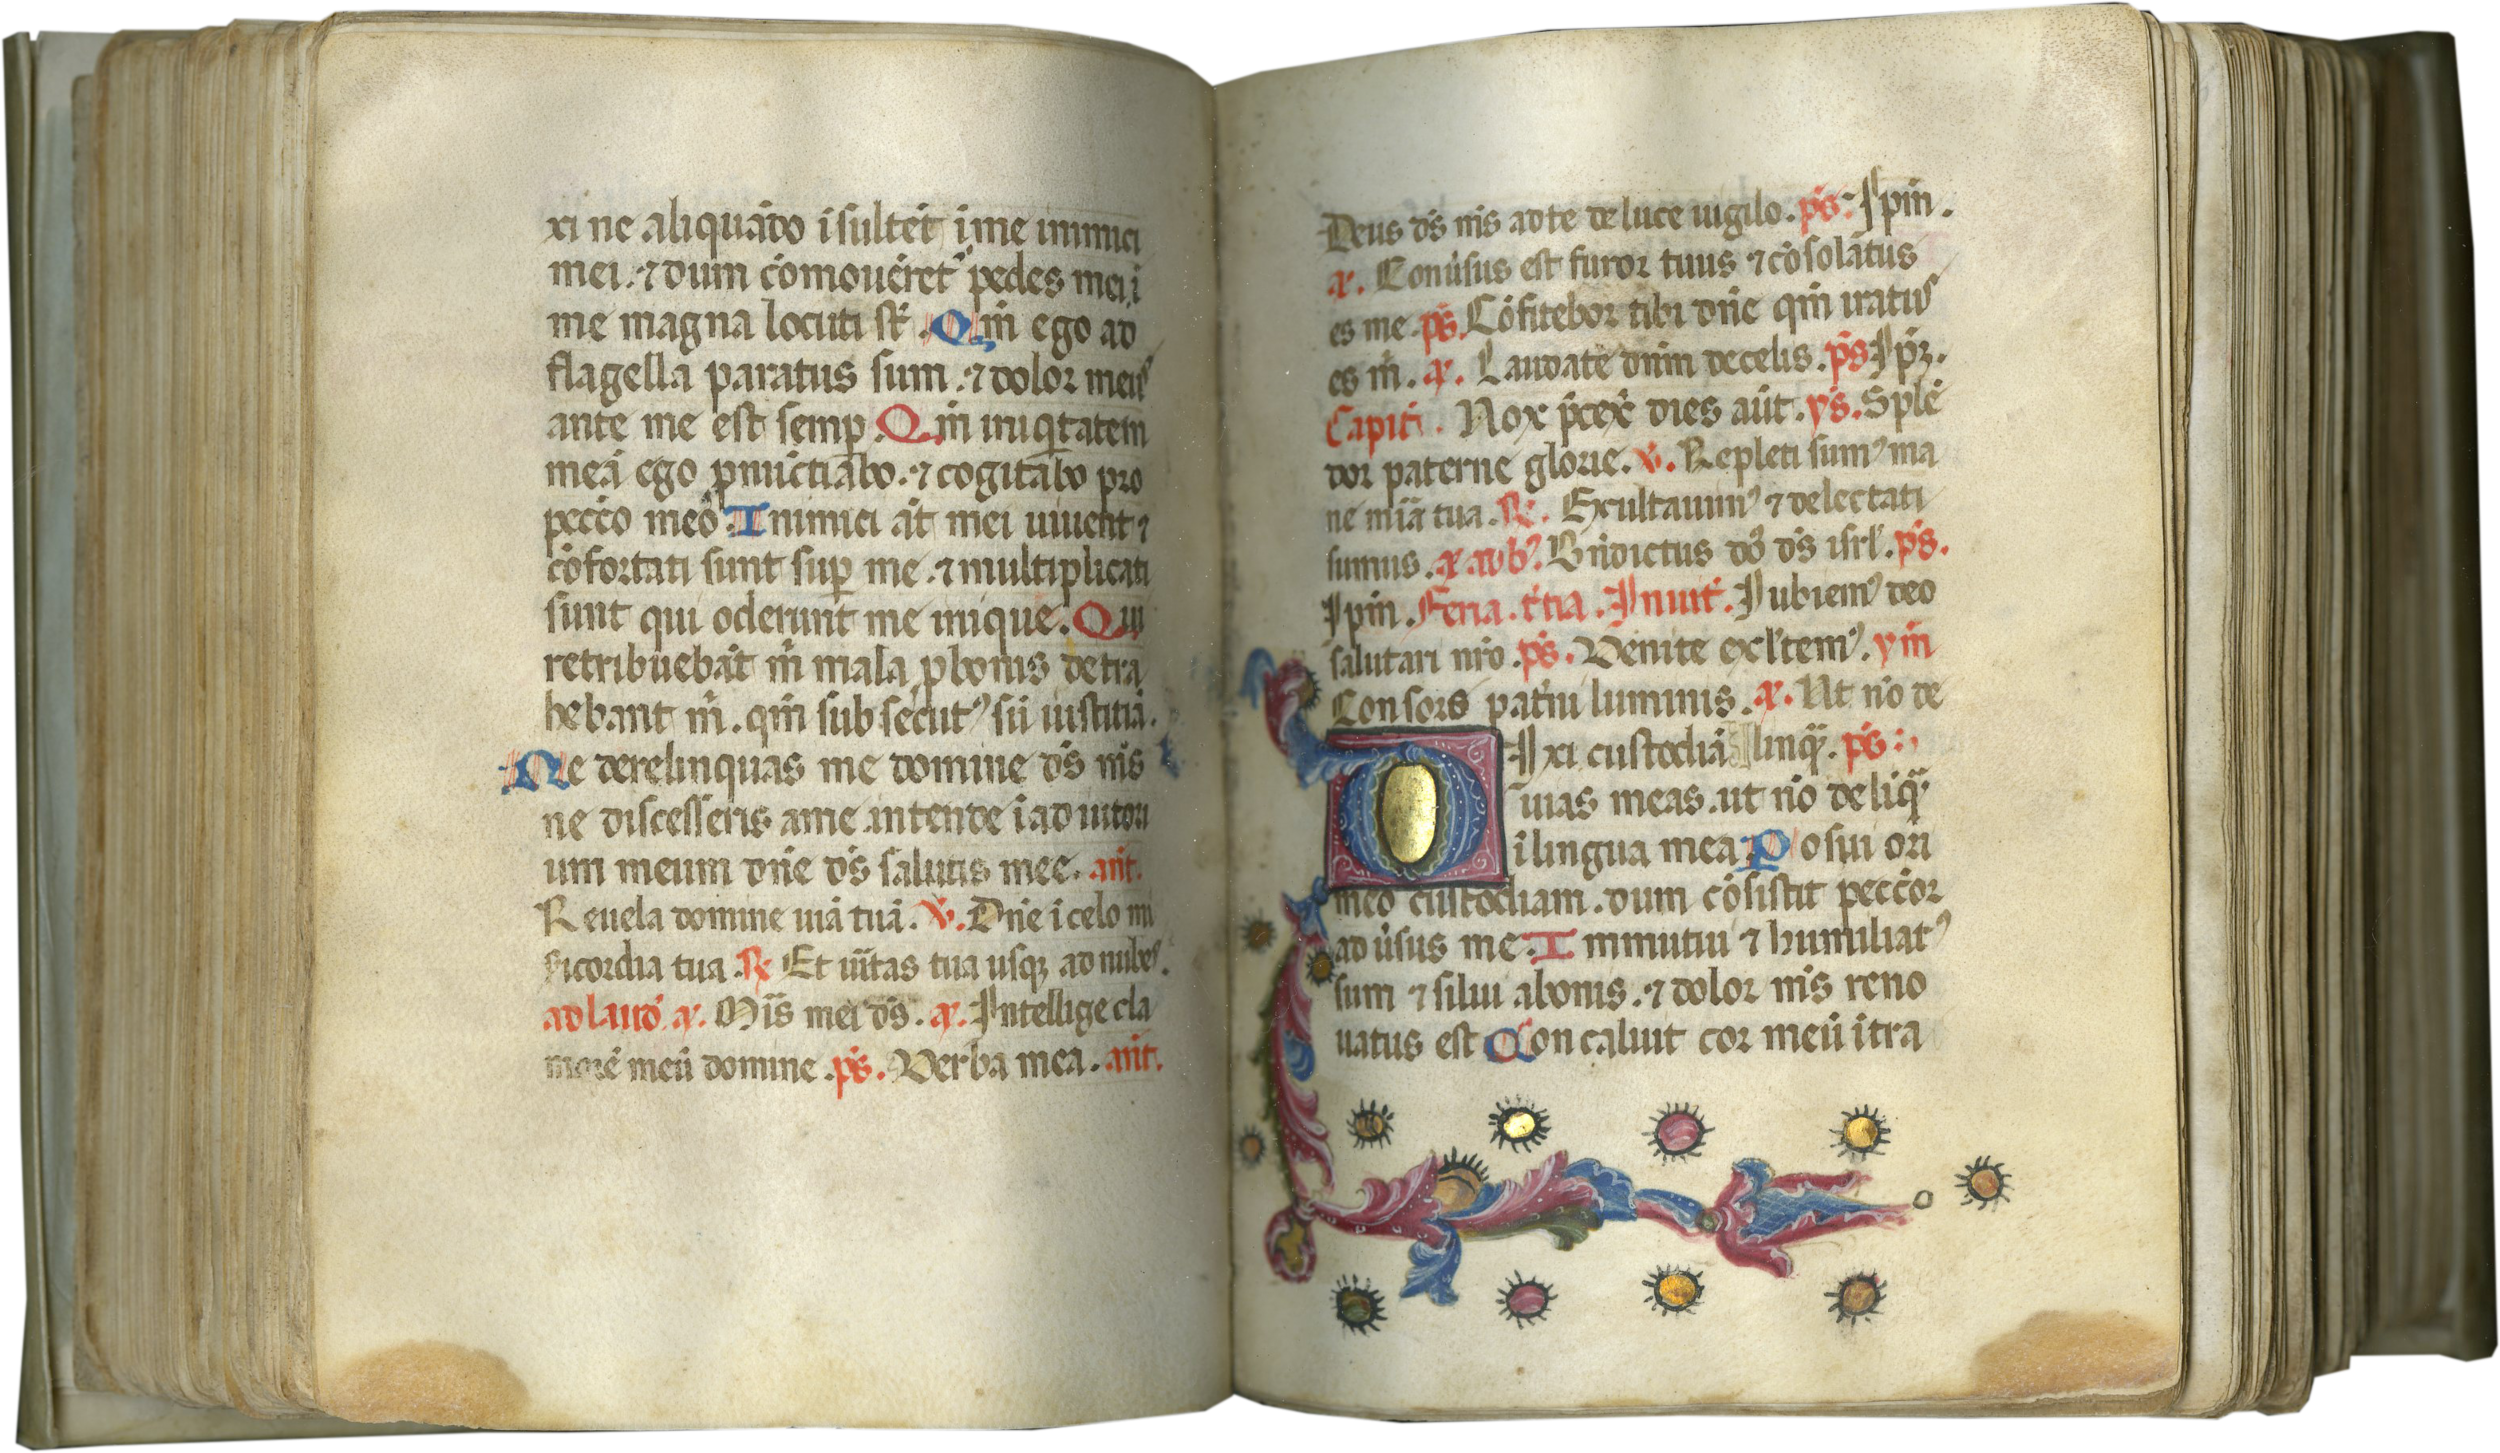 xi ne aliquādo īsultēt ī me inimici
mei. ⁊ dum cōmouērēt᾿ pedes mei ī
me magna locuti st̄. Qm̄ ego ad
flagella paratus sum. ⁊ dolor meus
ante me est semꝑ. Qm̄ iniqͥtatem
meā ego ꝓnūctiabo. ⁊ cogitabo pro
pecc̄o meō. Inimici āt mei uiuent ⁊
cōfortati sunt suꝑ me. ⁊ multiplicati
sunt qui oderunt me inique. Qui
retribuebāt m̄ mala ꝓ bonis detra
hebant m̄. qm̄ subsecut᾿ sū iustitiā.
Ne derelinquas me domine d̄s m̄s
ne discesseris a me. intende ī adiutori
um meum dn̄e d̄s salutis mee. an̄t.
Reuela domine uiā tuā. v̄. Dn̄e ī celo mi
sicordia tua. ℟. Et ūitas tua usqꝫ ad nubes.
ad laud̄ a. Mīs mei d̄s. a. Intellige cla
morē meū domine. p̄s. Verba mea. an̄t.
Deus d̄s m̄s ad te de luce uigilo. p̄s. Ip̄m.
a. Conūsus est furor tuus ⁊ cōsolātus
es me. p̄s. Cōfitebor tibi dn̄e qm̄ iratus
es m̄. a. Laudate dn̄m de celis. p̄s. Ip̄ꝫ.
Capit̄. Nox p̄cex̄ dies aūt. ys. Splē
dor paterne glorie. v̄. Repleti sum᾿ ma
ne mīa tua. ℟. Exultauim᾿ ⁊ delectati
sumus. a. ad b᾿. Bn̄dictus dō d̄s isrl̄. p̄s.
Ip̄m. Feria. t̄tia. Inuit̄. Iubilem᾿ deo
salutari nr̄o. p̄s. Venite exl̄tem᾿. ym̄
Consors pat̄ni luminis. a. Ut nō de
Dixi custodiā linq̄. p̄s.
uias meas. ut nō delīq̄
ī lingua mea. Posui ori
meo custodiam. dum cōsistit pecc̄or
ad ūsus me. Immutui ⁊ humiliat᾿
sum ⁊ silui a bonis. ⁊ dolor m̄s reno
uatus est. Concaluit cor meū ītra